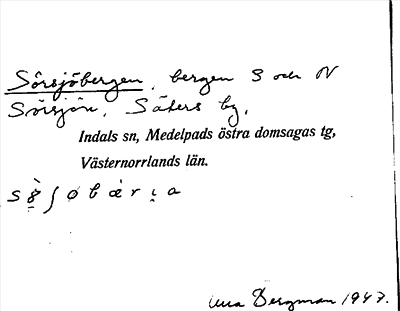 Sörsjöbergen, bergen S och N
Sörsjön, Säters by,
Indals sn, Medelpads östra domsagas tg,
Västernorrlands län.
Bergman 1947.